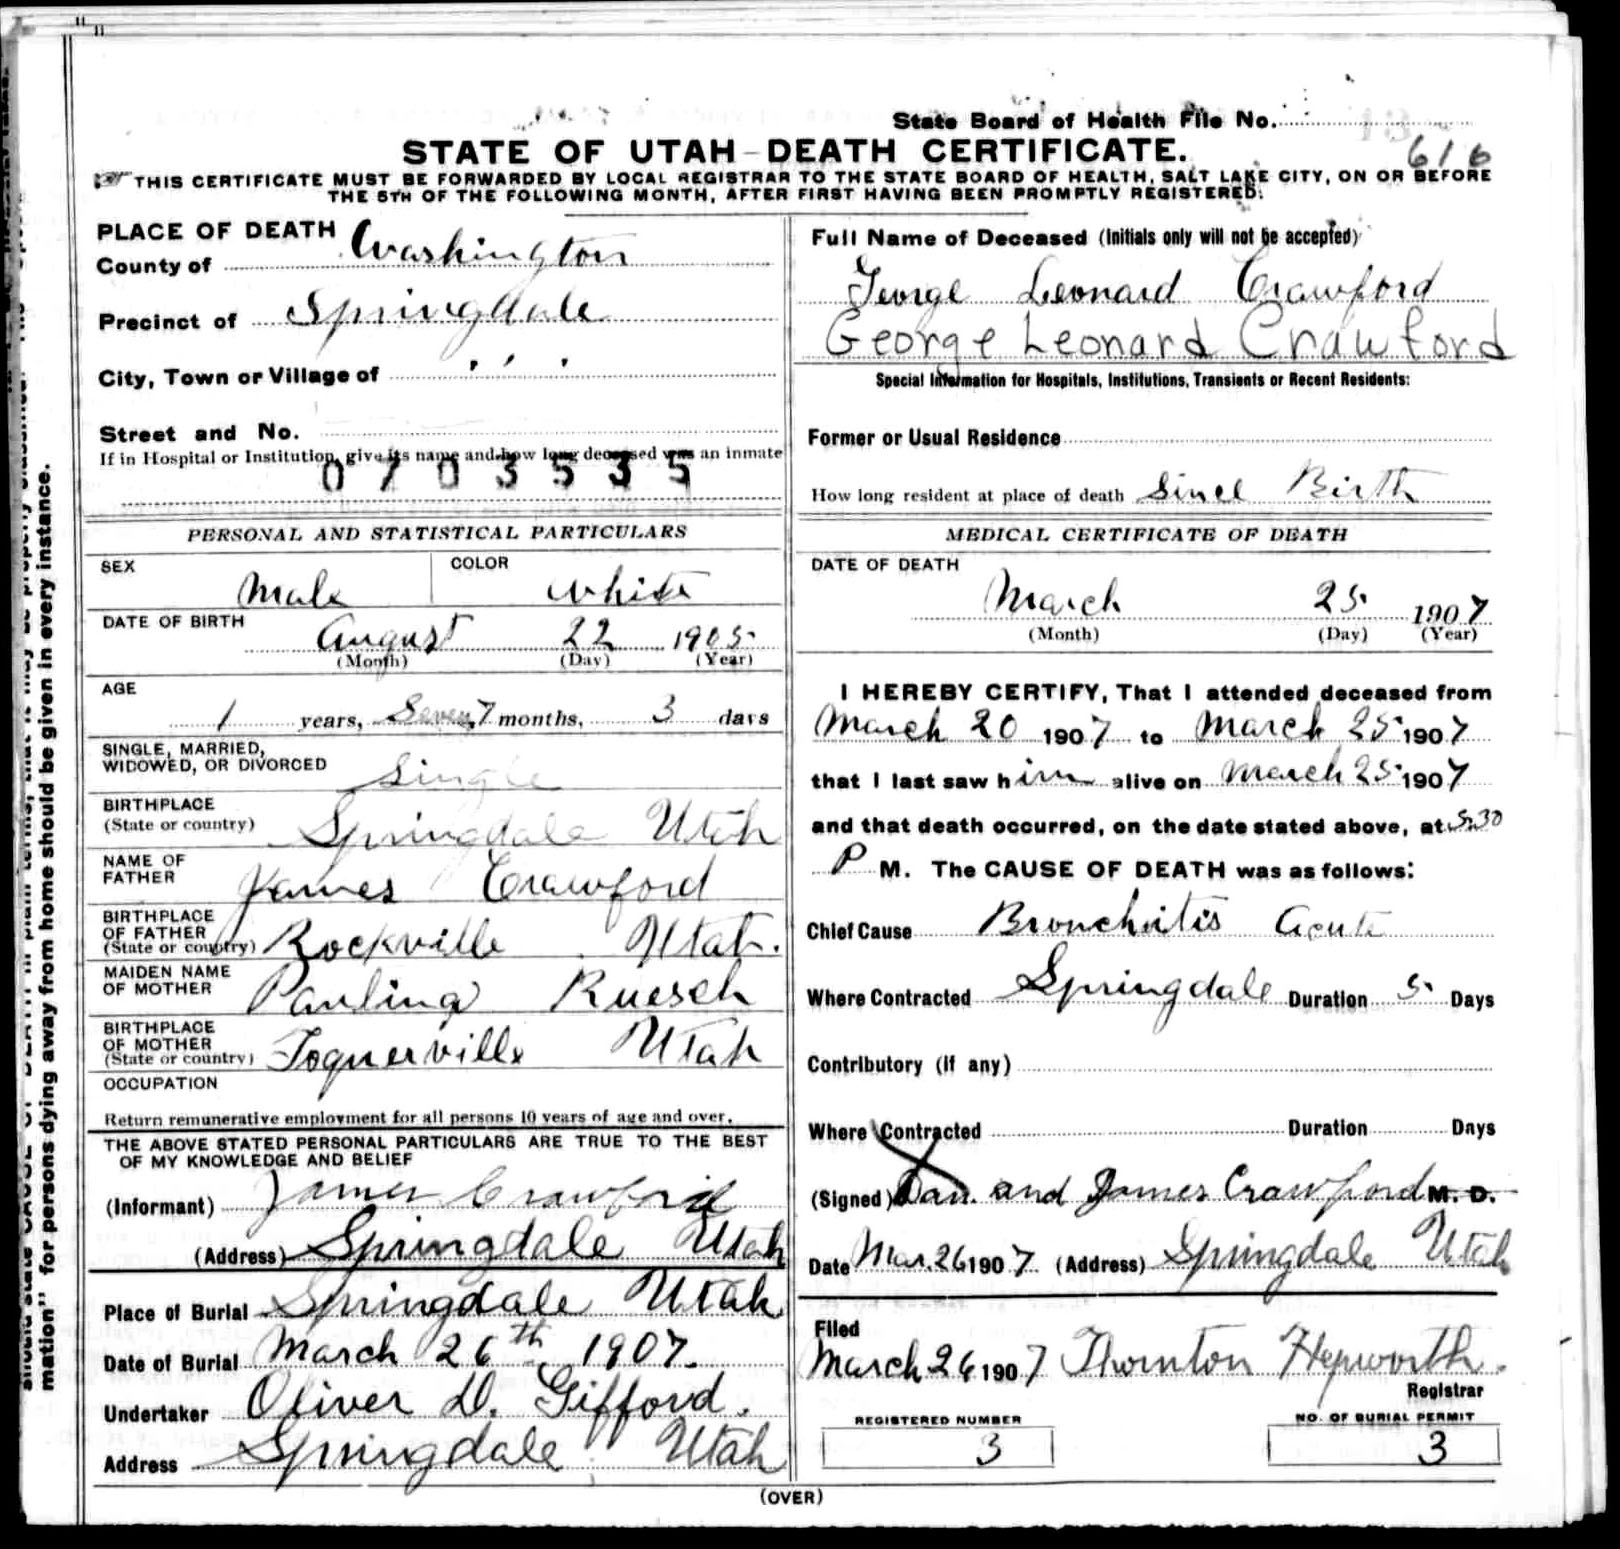 State Board of Health File No.
616
STATE OF UTAH - DEATH CERTIFICATE.
THIS CERTIFICATE MUST BE FORWARDED BY LOCAL REGISTRAR TO THE STATE BOARD OF HEALTH, SALT LAKE CITY, ON OR BEFORE
THE 5TH OF THE FOLLOWING MONTH, AFTER FIRST HAVING BEEN PROMPTLY REGISTERED.
PLACE OF DEATH
County of Washington
Precinct of Springdale
City, Town or Village of " "
Street and No.
If in Hospital or Institution, give its name and how long deceased was an inmate
0703535
PERSONAL AND STATISTICAL PARTICULARS
SEX Male COLOR White
DATE OF BIRTH August 22 1905
(Month) (Day) (Year)
AGE
1 years, Seven 7 months, 3 days
SINGLE, MARRIED,
WIDOWED, OR DIVORCED Single
BIRTHPLACE
(State or country) Springdale Utah
NAME OF
FATHER James Crawford
BIRTHPLACE
OF FATHER
(State or country) Rockville Utah.
MAIDEN NAME
OF MOTHER Paulina Ruesch
BIRTHPLACE
OF MOTHER
(State or country) Toquerville Utah
OCCUPATION
Return remunerative employment for all persons 10 years of age and over.
THE ABOVE STATED PERSONAL PARTICULARS ARE TRUE TO THE BEST
OF MY KNOWLEDGE AND BELIEF
(Informant) James Crawford
(Address) Springdale Utah
Place of Burial Springdale Utah
Date of Burial March 26th 1907.
Undertaker Oliver D. Gifford.
Address Springdale Utah
Full Name of Deceased (Initials only will not be accepted)
George Leonard Crawford
George Leonard Crawford
Special Information for Hospitals, Institutions, Transients or Recent Residents:
Former or Usual Residence
How long resident at place of death Since Birth
MEDICAL CERTIFICATE OF DEATH
DATE OF DEATH
March 25 1907
(Month) (Day) (Year)
I HEREBY CERTIFY, That I attended deceased from
March 20 1907 to March 25 1907
that I last saw him alive on March 25 1907
and that death occurred, on the date stated above, at 5.30
P M. The CAUSE OF DEATH was as follows:
Chief Cause Bronchitis Acute
Where Contracted Springdale Duration 5 Days
Contributory (if any)
Where Contracted Duration Days
(Signed) Dan. and James Crawford M. D.
Date Mar. 26 1907 (Address) Springdale Utah
Filed
March 26 1907 Thornton Hepworth.
Registrar
REGISTERED NUMBER
3
NO. OF BURIAL PERMIT
3
(OVER)
mation" for persons dying away from home should be given in every instance.